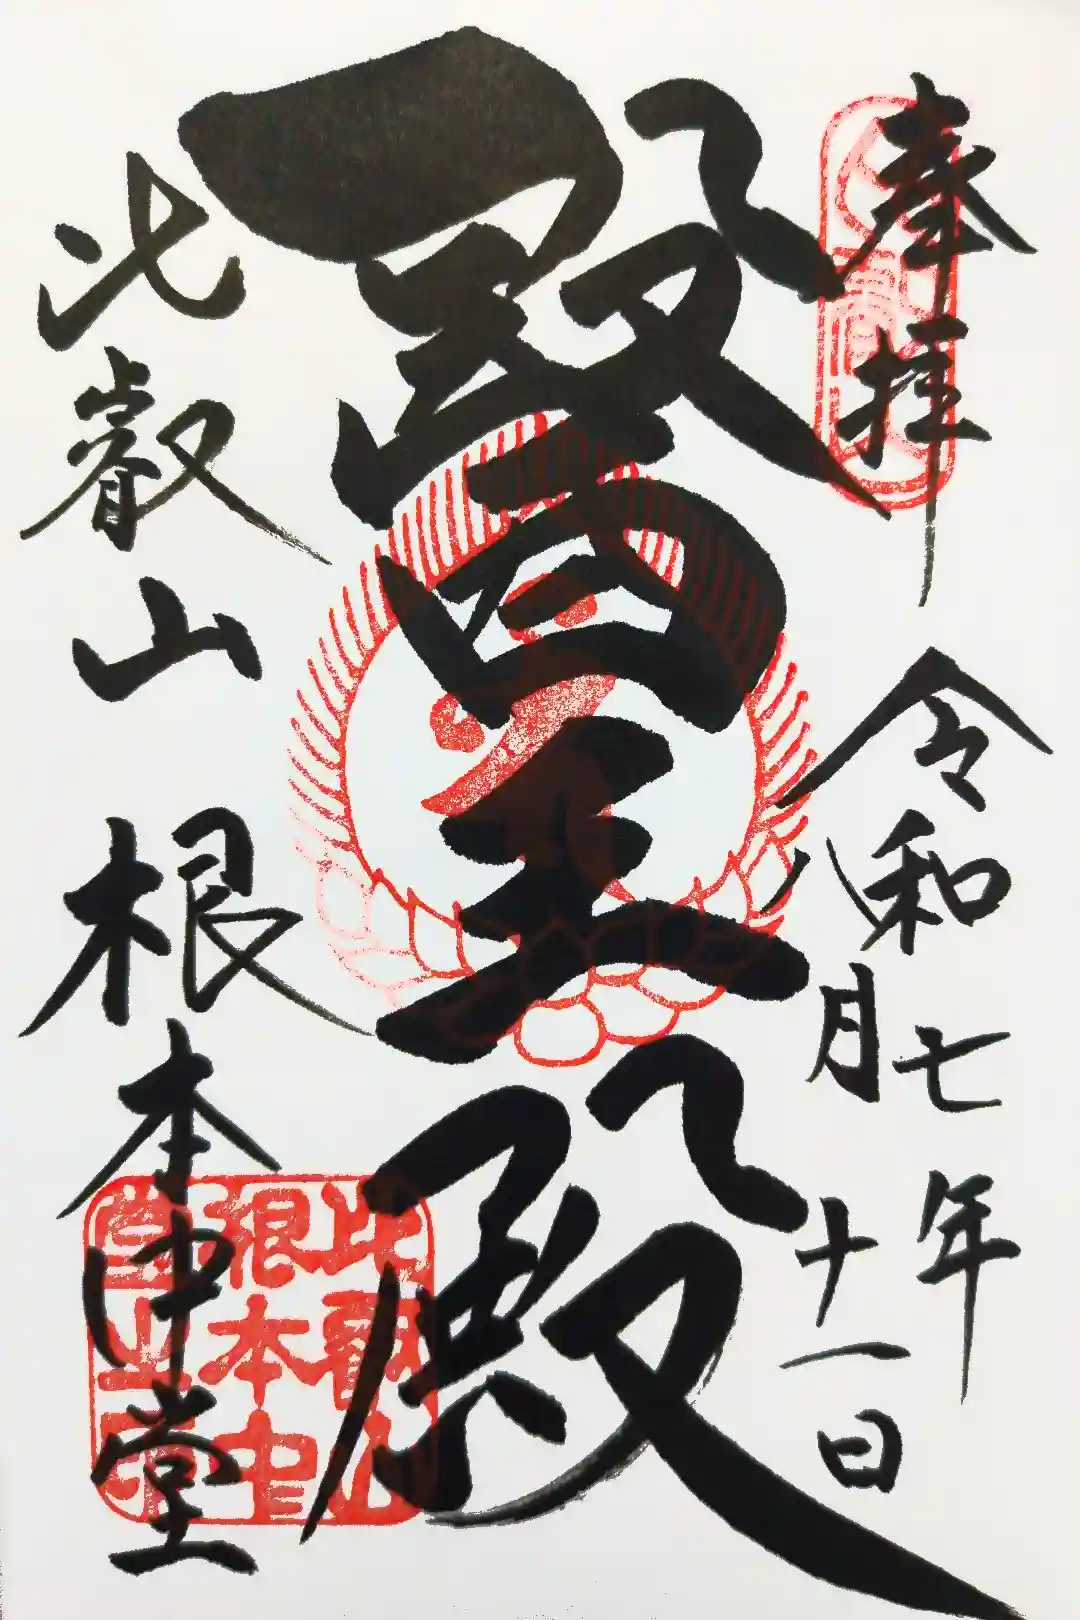 奉拝
令和七年
八月十一日
醫王殿
比叡山 根本中堂
比叡山
根本中
堂之印